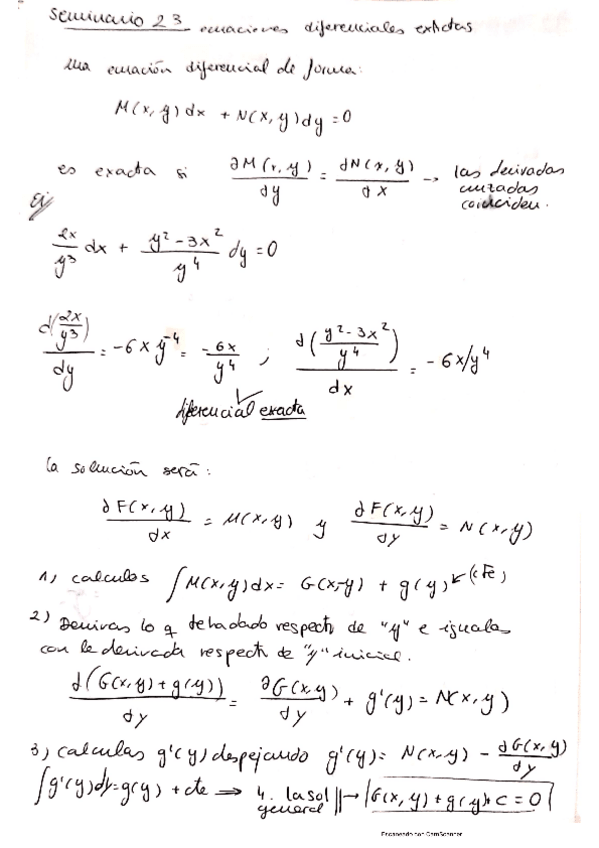 Seminario 23 ecuaciones diferenciales exactas
una ecuación diferencial de forma:
M(x,y)dx + N(x,y)dy = 0
es exacta si ∂M(x,y)/dy = dN(x,y)/dx → las derivadas
cruzadas
coinciden.
Ej
2x/y³ dx + (y² - 3x²)/y⁴ dy = 0
d(2x/y³)/dy = -6xy⁻⁴ = -6x/y⁴ ; d((y² - 3x²)/y⁴)/dx = -6x/y⁴
diferencial exacta
la solución será:
∂F(x,y)/dx = M(x,y) y ∂F(x,y)/dy = N(x,y)
1) calculas ∫M(x,y)dx = G(x,y) + g(y) (cte)
2) Derivas lo q te ha dado respecto de "y" e igualas
con la derivada respecto de "y" inicial.
d(G(x,y)+g(y))/dy = ∂G(x,y)/dy + g'(y) = N(x,y)
3) calculas g'(y) despejando g'(y) = N(x,y) - ∂G(x,y)/dy
∫g'(y)dy = g(y) + cte ⇒ 4. la sol general → G(x,y) + g(y) + C = 0
Escaneado con CamScanner